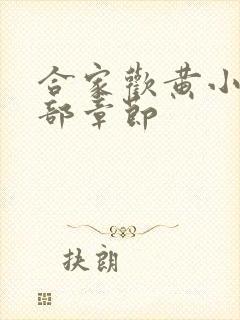 合家歡黄小
部章節
扶朗